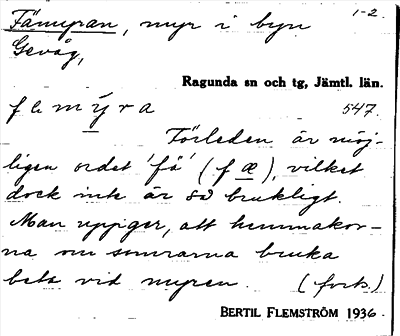 Fämyran, myr i byn 1-2.
Gevåg,
Ragunda sn och tg, Jämtl. län.
f e m y̱ r a 547.
Förleden är möj-
ligen ordet 'fä' (f æ̱), vilket
dock inte är så brukligt.
Man uppger, att hemmakor-
na om somrarna bruka
beta vid myren. (forts.)
BERTIL FLEMSTRÖM 1936